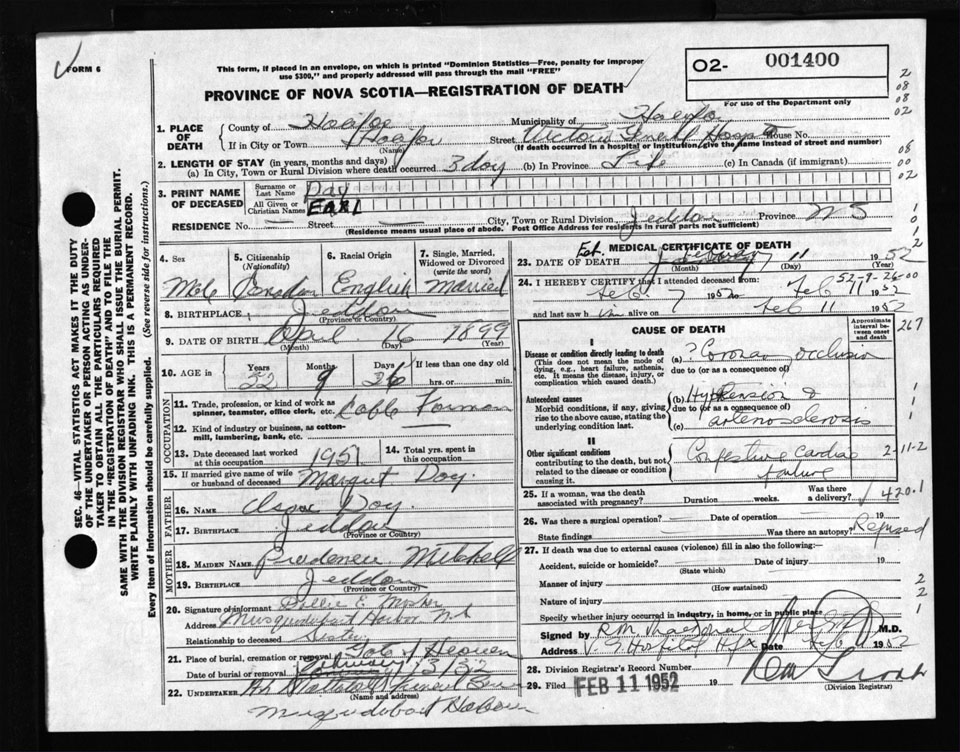 FORM 6
This form, if placed in an envelope, on which is printed "Dominion Statistics—Free, penalty for improper
use $300," and properly addressed will pass through the mail "FREE"
PROVINCE OF NOVA SCOTIA—REGISTRATION OF DEATH
O2- 001400
For use of the Department only
1. PLACE OF DEATH
County of Municipality of
If in City or Town (Name) Street House No.
(If death occurred in a hospital or institution, give the name instead of street and number)
2. LENGTH OF STAY (in years, months and days)
(a) In City, Town or Rural Division where death occurred 3 day (b) In Province Life (c) In Canada (if immigrant)
3. PRINT NAME OF DECEASED
Surname or Last Name Day
All Given or Christian Names EARL
RESIDENCE No. — Street — City, Town or Rural Division Jeddore Province N S
(Residence means usual place of abode. Post Office Address for residents in rural parts not sufficient)
4. Sex Male
5. Citizenship (Nationality) Canadian
6. Racial Origin English
7. Single, Married, Widowed or Divorced (write the word) Married
8. BIRTHPLACE Jeddore
(Province or Country)
9. DATE OF BIRTH April 16 1899
(Month) (Day) (Year)
10. AGE in Years 52 Months 9 Days 26 If less than one day old
hrs. or min.
OCCUPATION
11. Trade, profession, or kind of work as
spinner, teamster, office clerk, etc. Cable Forman
12. Kind of industry or business, as cotten-
mill, lumbering, bank, etc. —
13. Date deceased last worked at this occupation 1951
14. Total yrs. spent in this occupation
15. If married give name of wife or husband of deceased Day
FATHER
16. NAME Day
17. BIRTHPLACE Jeddore
(Province or Country)
MOTHER
18. MAIDEN NAME Mitchell
19. BIRTHPLACE Jeddore
(Province or Country)
20. Signature of informant
Address Musquodoboit Harbor N.S
Relationship to deceased Sister
21. Place of burial, cremation or removal Heaven
Date of burial or removal 13/52
22. UNDERTAKER
(Name and address)
Musquodoboit Harbour
MEDICAL CERTIFICATE OF DEATH
23. DATE OF DEATH Feb. 11 1952
(Month) (Day) (Year)
24. I HEREBY CERTIFY that I attended deceased from:
Feb 7 1952 to Feb 11 1952
and last saw him alive on Feb 11 1952
CAUSE OF DEATH
Approximate interval between onset and death
I
Disease or condition directly leading to death
(This does not mean the mode of dying, e.g., heart failure, asthenia, etc. It means the disease, injury, or complication which caused death.
(a) ? Coronary occlusion
due to (or as a consequence of)
Antecedent causes
Morbid conditions, if any, giving rise to the above cause, stating the underlying condition last.
(b) Hypertension &
due to (or as a consequence of)
(c) arteriosclerosis
II
Other significant conditions
contributing to the death, but not related to the disease or condition causing it.
Congestive Cardiac
failure
25. If a woman, was the death associated with pregnancy? Duration weeks. Was there a delivery?
420.1
26. Was there a surgical operation? — Date of operation 19
State findings Was there an autopsy? Refused
27. If death was due to external causes (violence) fill in also the following:—
Accident, suicide or homicide? (State which) Date of injury 19
Manner of injury
(How sustained)
Nature of injury
Specify whether injury occurred in industry, in home, or in public place
Signed by M.D.
Address V. G. Hospital Hfx Date 1952
28. Division Registrar's Record Number
29. Filed FEB 11 1952 19
(Division Registrar)
SEC. 46—VITAL STATISTICS ACT MAKES IT THE DUTY
OF THE UNDERTAKER OR PERSON ACTING AS UNDER-
TAKER TO OBTAIN ALL THE PARTICULARS REQUIRED
IN THE "REGISTRATION OF DEATH" AND TO FILE THE
SAME WITH THE DIVISION REGISTRAR WHO SHALL ISSUE THE BURIAL PERMIT.
WRITE PLAINLY WITH UNFADING INK. THIS IS A PERMANENT RECORD.
Every item of information should be carefully supplied. (See reverse side for instructions.)